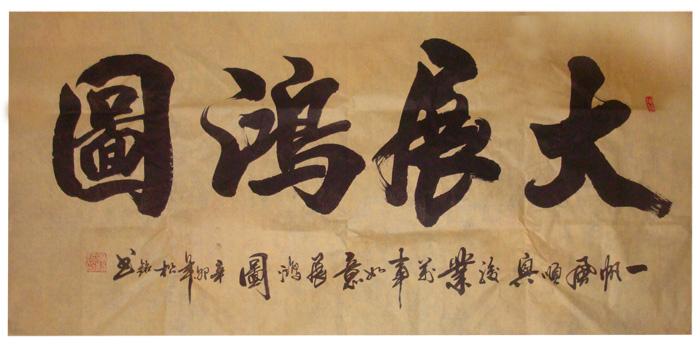 大展鴻圖
一帆風順興駿業萬事如意展鴻圖 辛卯年松 書